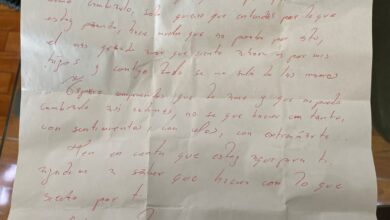 cambiarlo, solo quiero que entiendas por lo que
estoy pasando, hace mucho que no pasaba por esto,
el mas grande amor que siento ahora es por mis
hijos y contigo todo se me sale de las manos
Espero comprendas que te amo y que no puedo
cambiarlo asi estemos, no se que hacer con tanto,
con sentimientos, con celos, con extrañarte
Ten en cuenta que estoy aqui para ti,
ayudame a saber que hacer con lo que
siento por ti